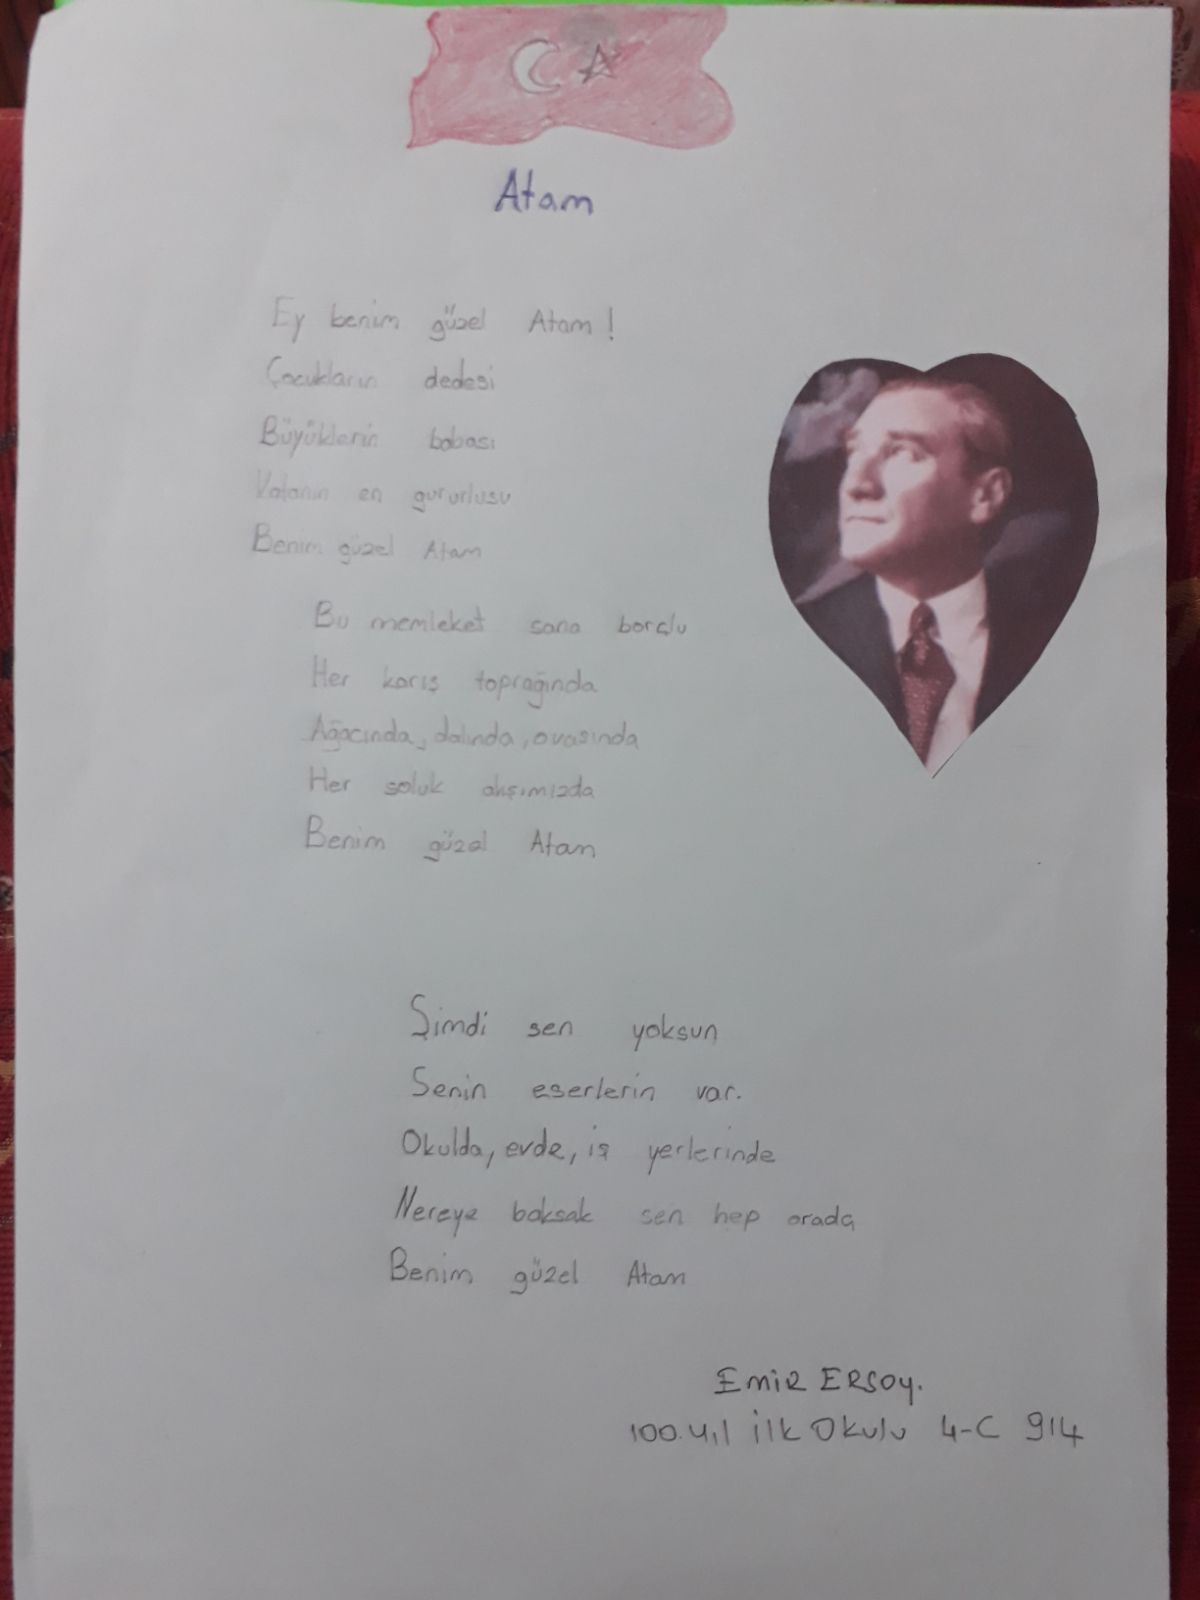 Atam
Ey benim güzel Atam!
Çocukların dedesi
Büyüklerin babası
Vatanın en gururlusu
Benim güzel Atam
Bu memleket sana borçlu
Her karış toprağında
Ağacında, dalında, ovasında
Her soluk alışımızda
Benim güzel Atam
Şimdi sen yoksun
Senin eserlerin var.
Okulda, evde, iş yerlerinde
Nereye baksak sen hep orada
Benim güzel Atam
Emir ERSOY.
100.yıl İlk Okulu 4-C 914